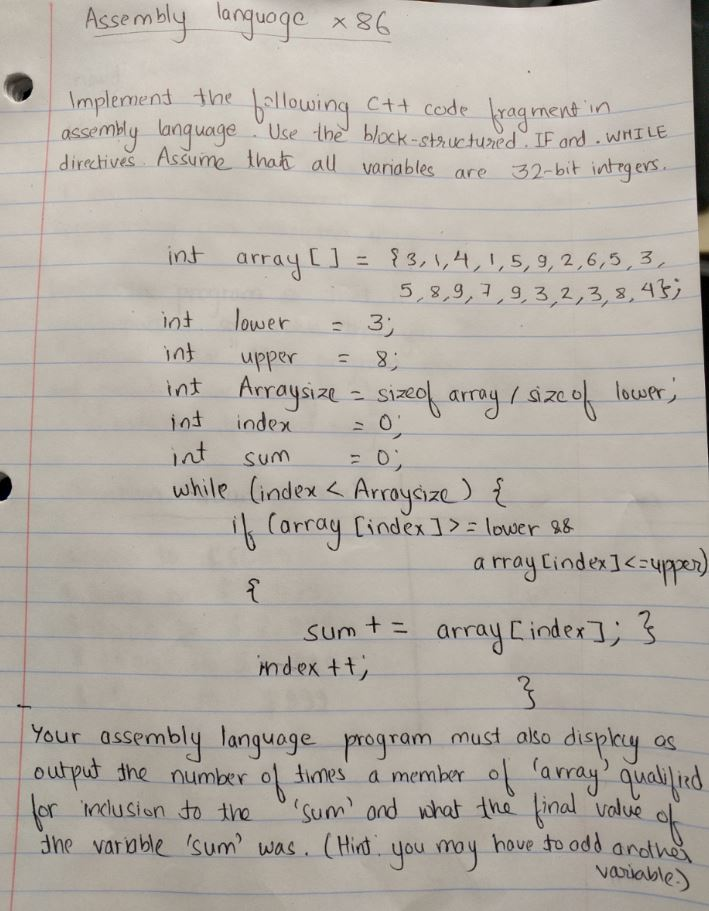 Assembly language x86
Implement the following C++ code fragment in
assembly language. Use the block-structured .IF and .WHILE
directives. Assume that all variables are 32-bit integers.
int array [ ] = {3,1,4,1,5,9,2,6,5,3,
5,8,9,7,9,3,2,3,8,4};
int lower = 3;
int upper = 8;
int Arraysize = sizeof array / sizeof lower;
int index = 0;
int sum = 0;
while (index < Arraysize) {
if (array [index] >= lower &&
array [index] <= upper)
{
sum += array [index]; }
index ++;
}
Your assembly language program must also display as
output the number of times a member of 'array' qualified
for inclusion to the 'sum' and what the final value of
the variable 'sum' was. (Hint: you may have to add another
variable.)